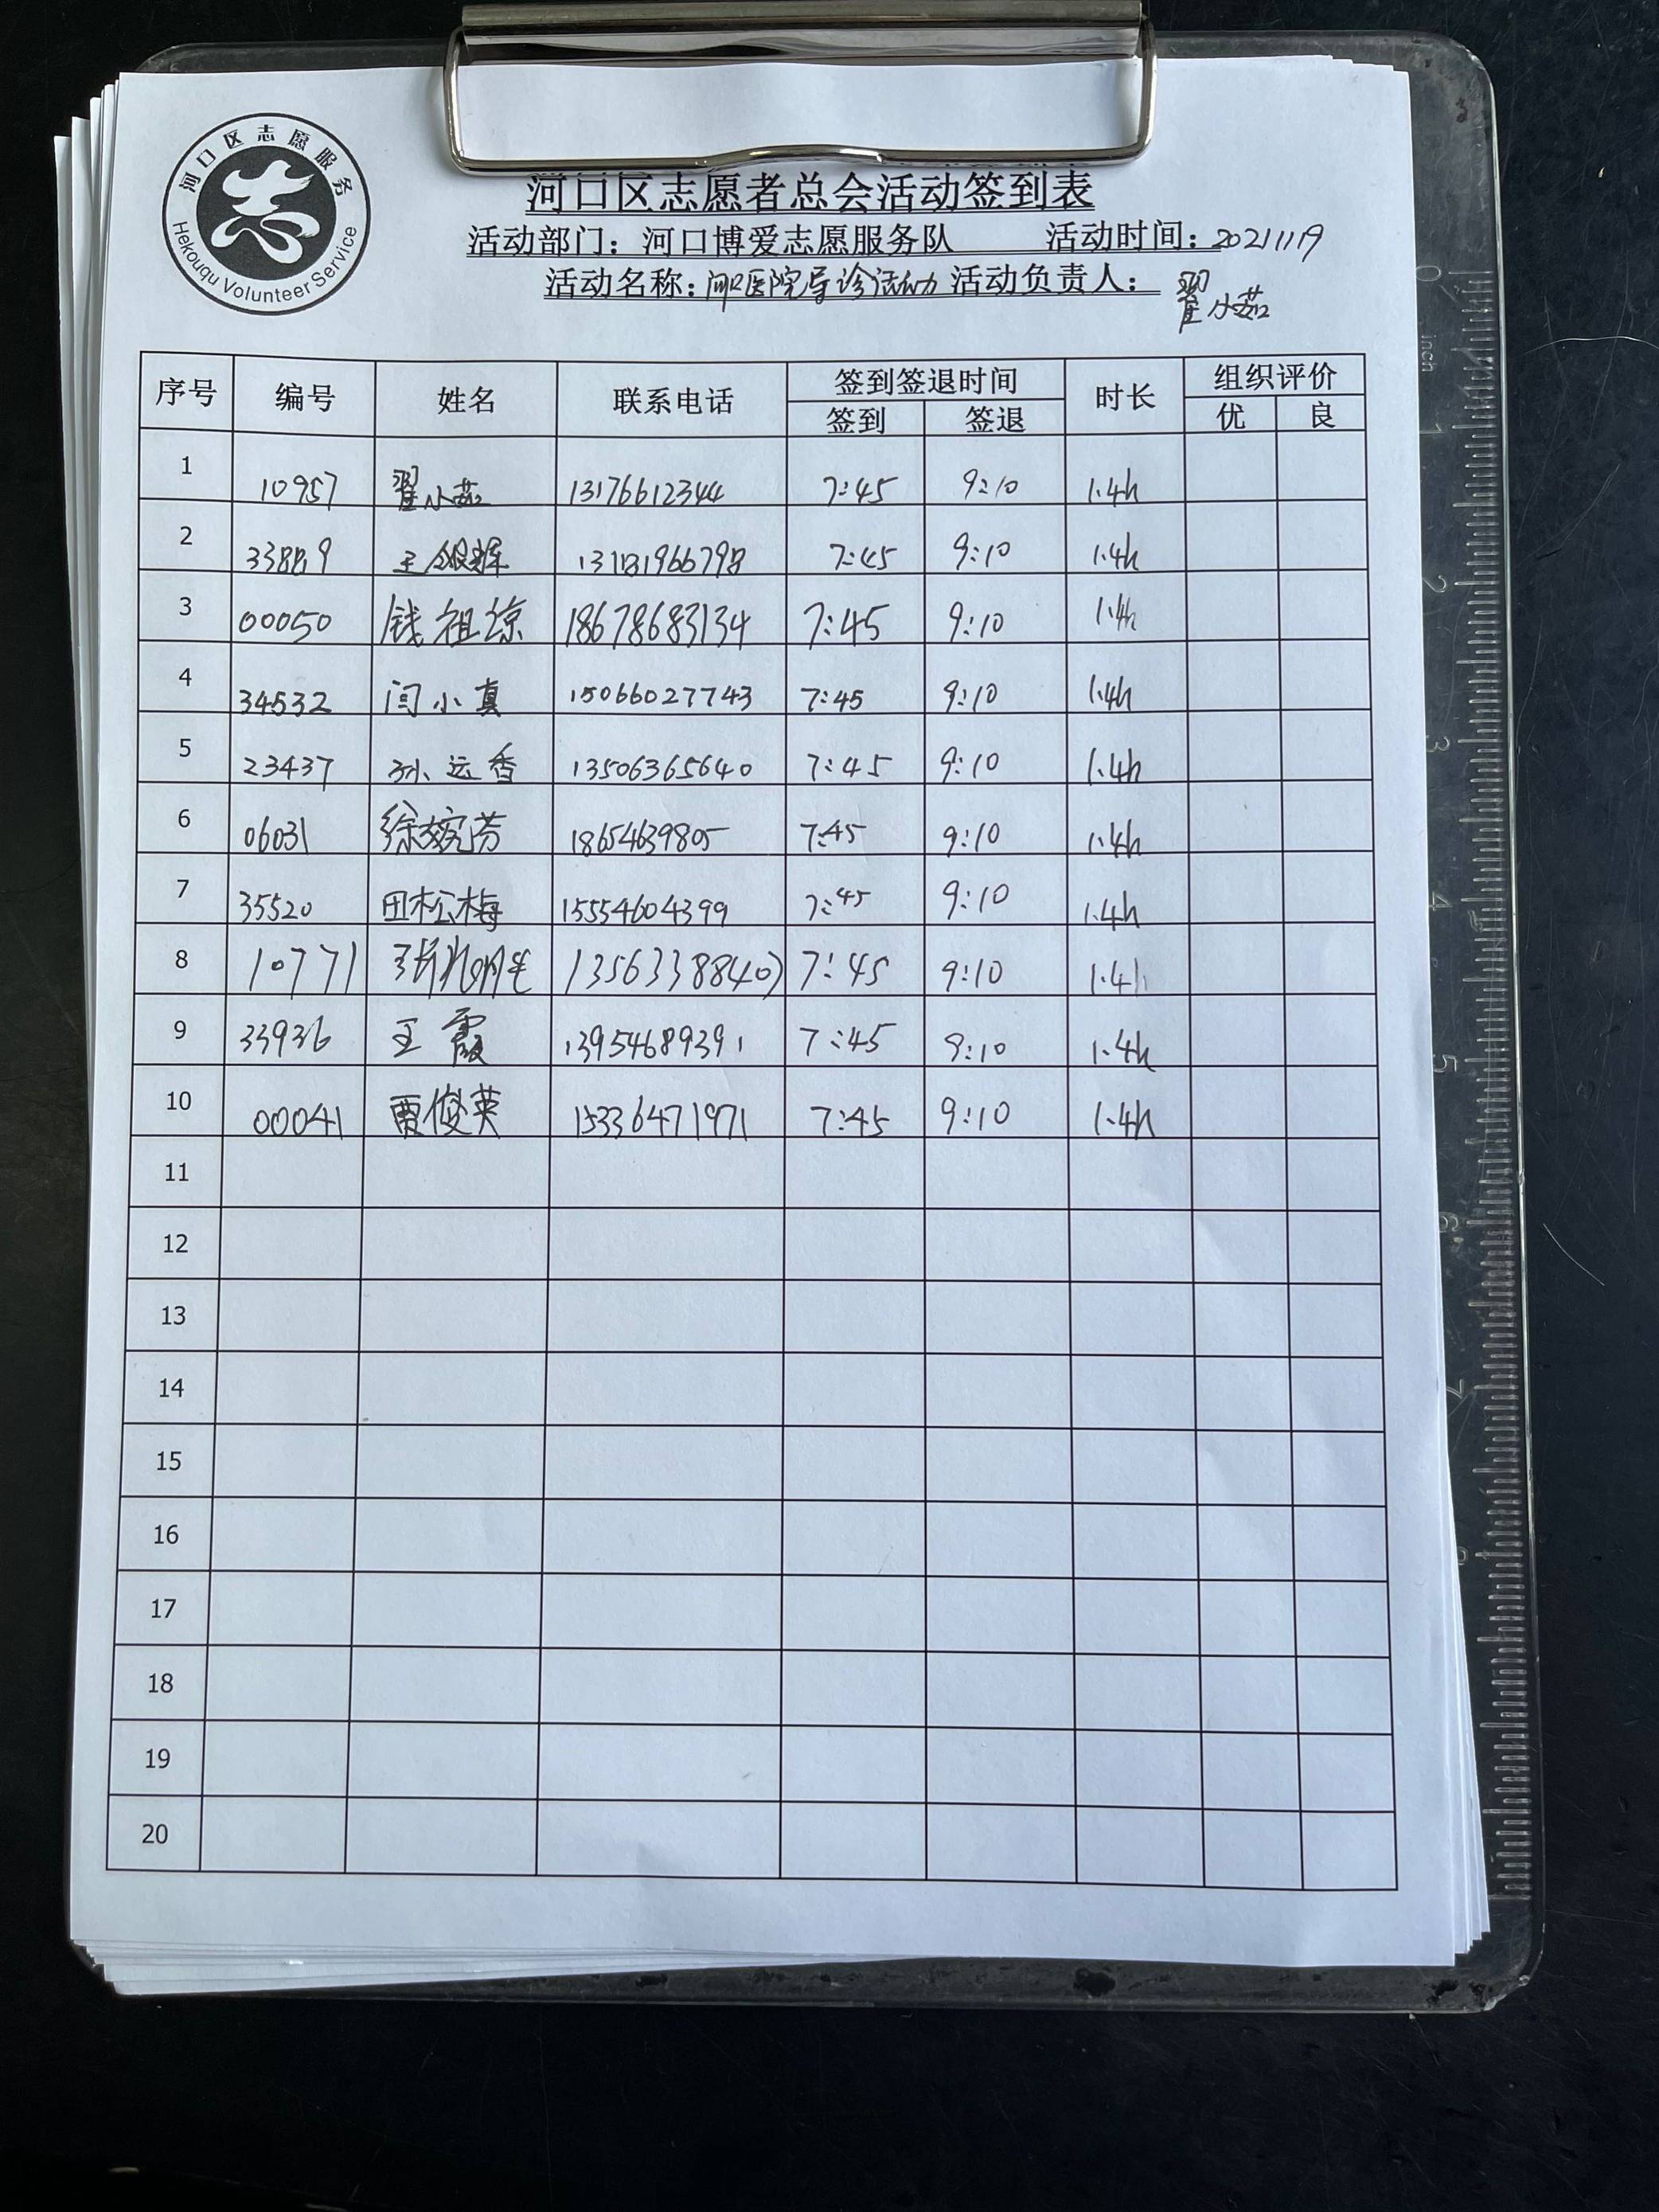 河口区志愿服务
Hekouqu Volunteer Service
河口区志愿者总会活动签到表
活动部门：河口博爱志愿服务队 活动时间：20211119
活动名称：河口医院导诊活动 活动负责人：翟小茹
序号 编号 姓名 联系电话 签到签退时间 时长 组织评价
签到 签退 优 良
1 10957 翟小茹 13176612344 7:45 9:10 1.4h
2 33889 王银辉 13181966798 7:45 9:10 1.4h
3 00050 钱祖琼 18678683134 7:45 9:10 1.4h
4 34532 闫小真 15066027743 7:45 9:10 1.4h
5 23437 孙远香 13506365640 7:45 9:10 1.4h
6 06031 徐婉芳 18654639805 7:45 9:10 1.4h
7 35520 田松梅 15554604399 7:45 9:10 1.4h
8 10771 13563388407 7:45 9:10 1.4h
9 33936 王霞 13954689391 7:45 9:10 1.4h
10 00041 贾俊英 15336471971 7:45 9:10 1.4h
11
12
13
14
15
16
17
18
19
20
0 inch
1
2
3
4
5
6
7
8